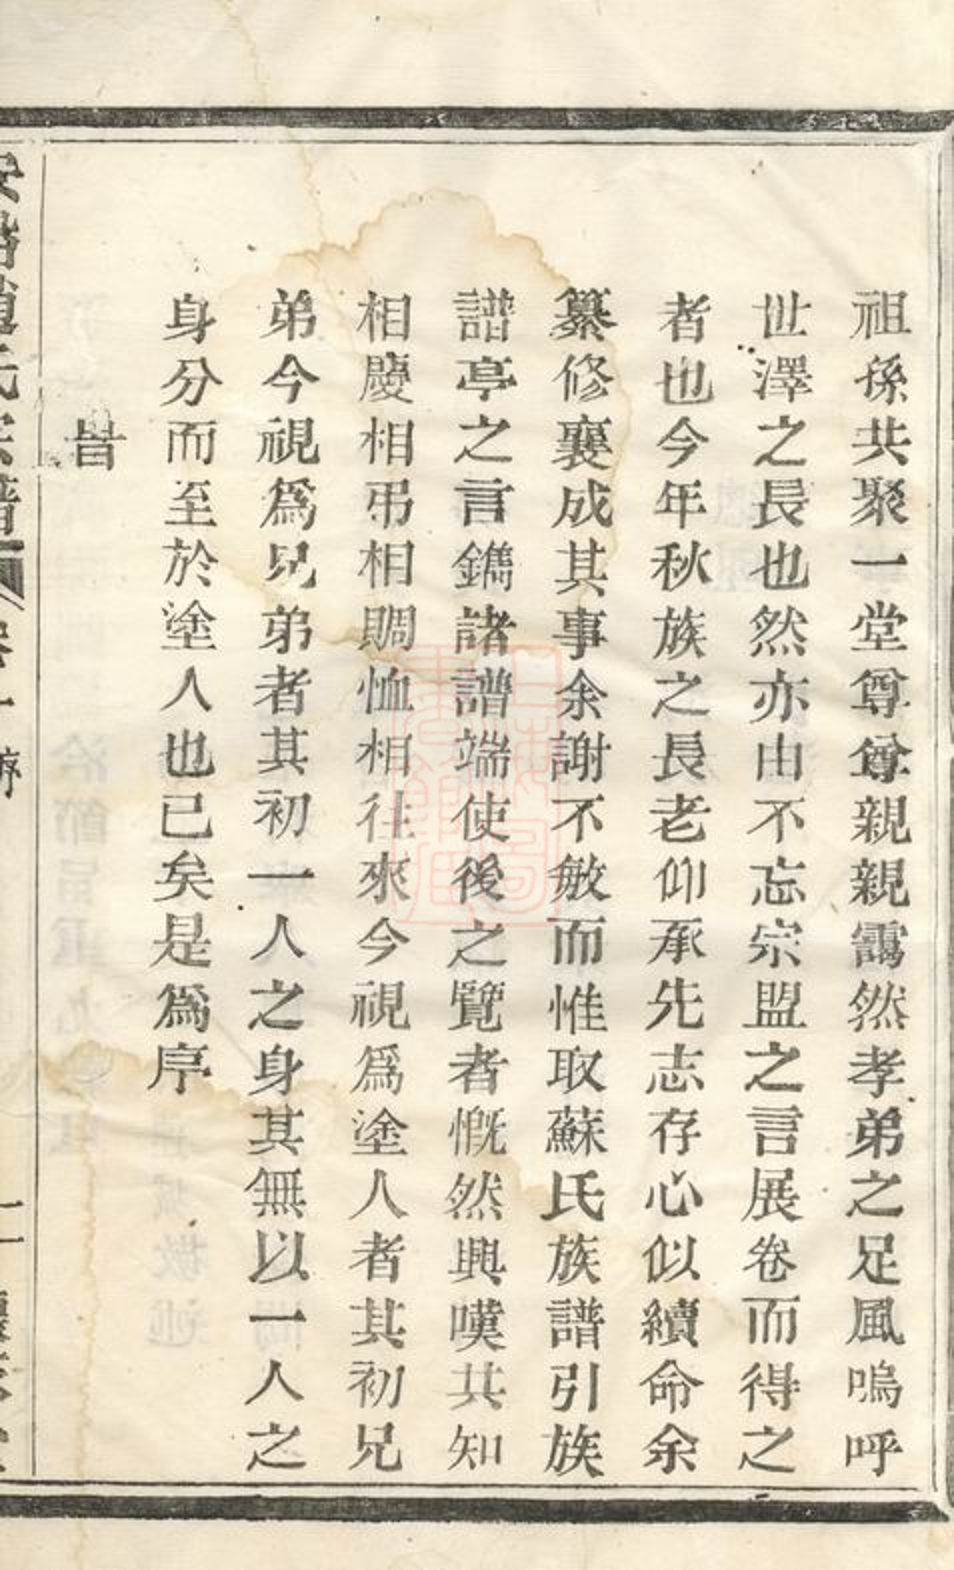 祖孫共聚一堂尊尊親親靄然孝弟之足風嗚呼
世澤之長也然亦由不忘宗盟之言展卷而得之
者也今年秋族之長老仰承先志存心似續命余
纂修襄成其事余謝不敏而惟取蘇氏族譜引族
譜亭之言鐫諸譜端使後之覽者慨然興嘆共知
相慶相弔相賙恤相往來今視爲塗人者其初兄
弟今視爲兄弟者其初一人之身其無以一人之
身分而至於塗人也已矣是爲序
旹
趙氏宗譜
序